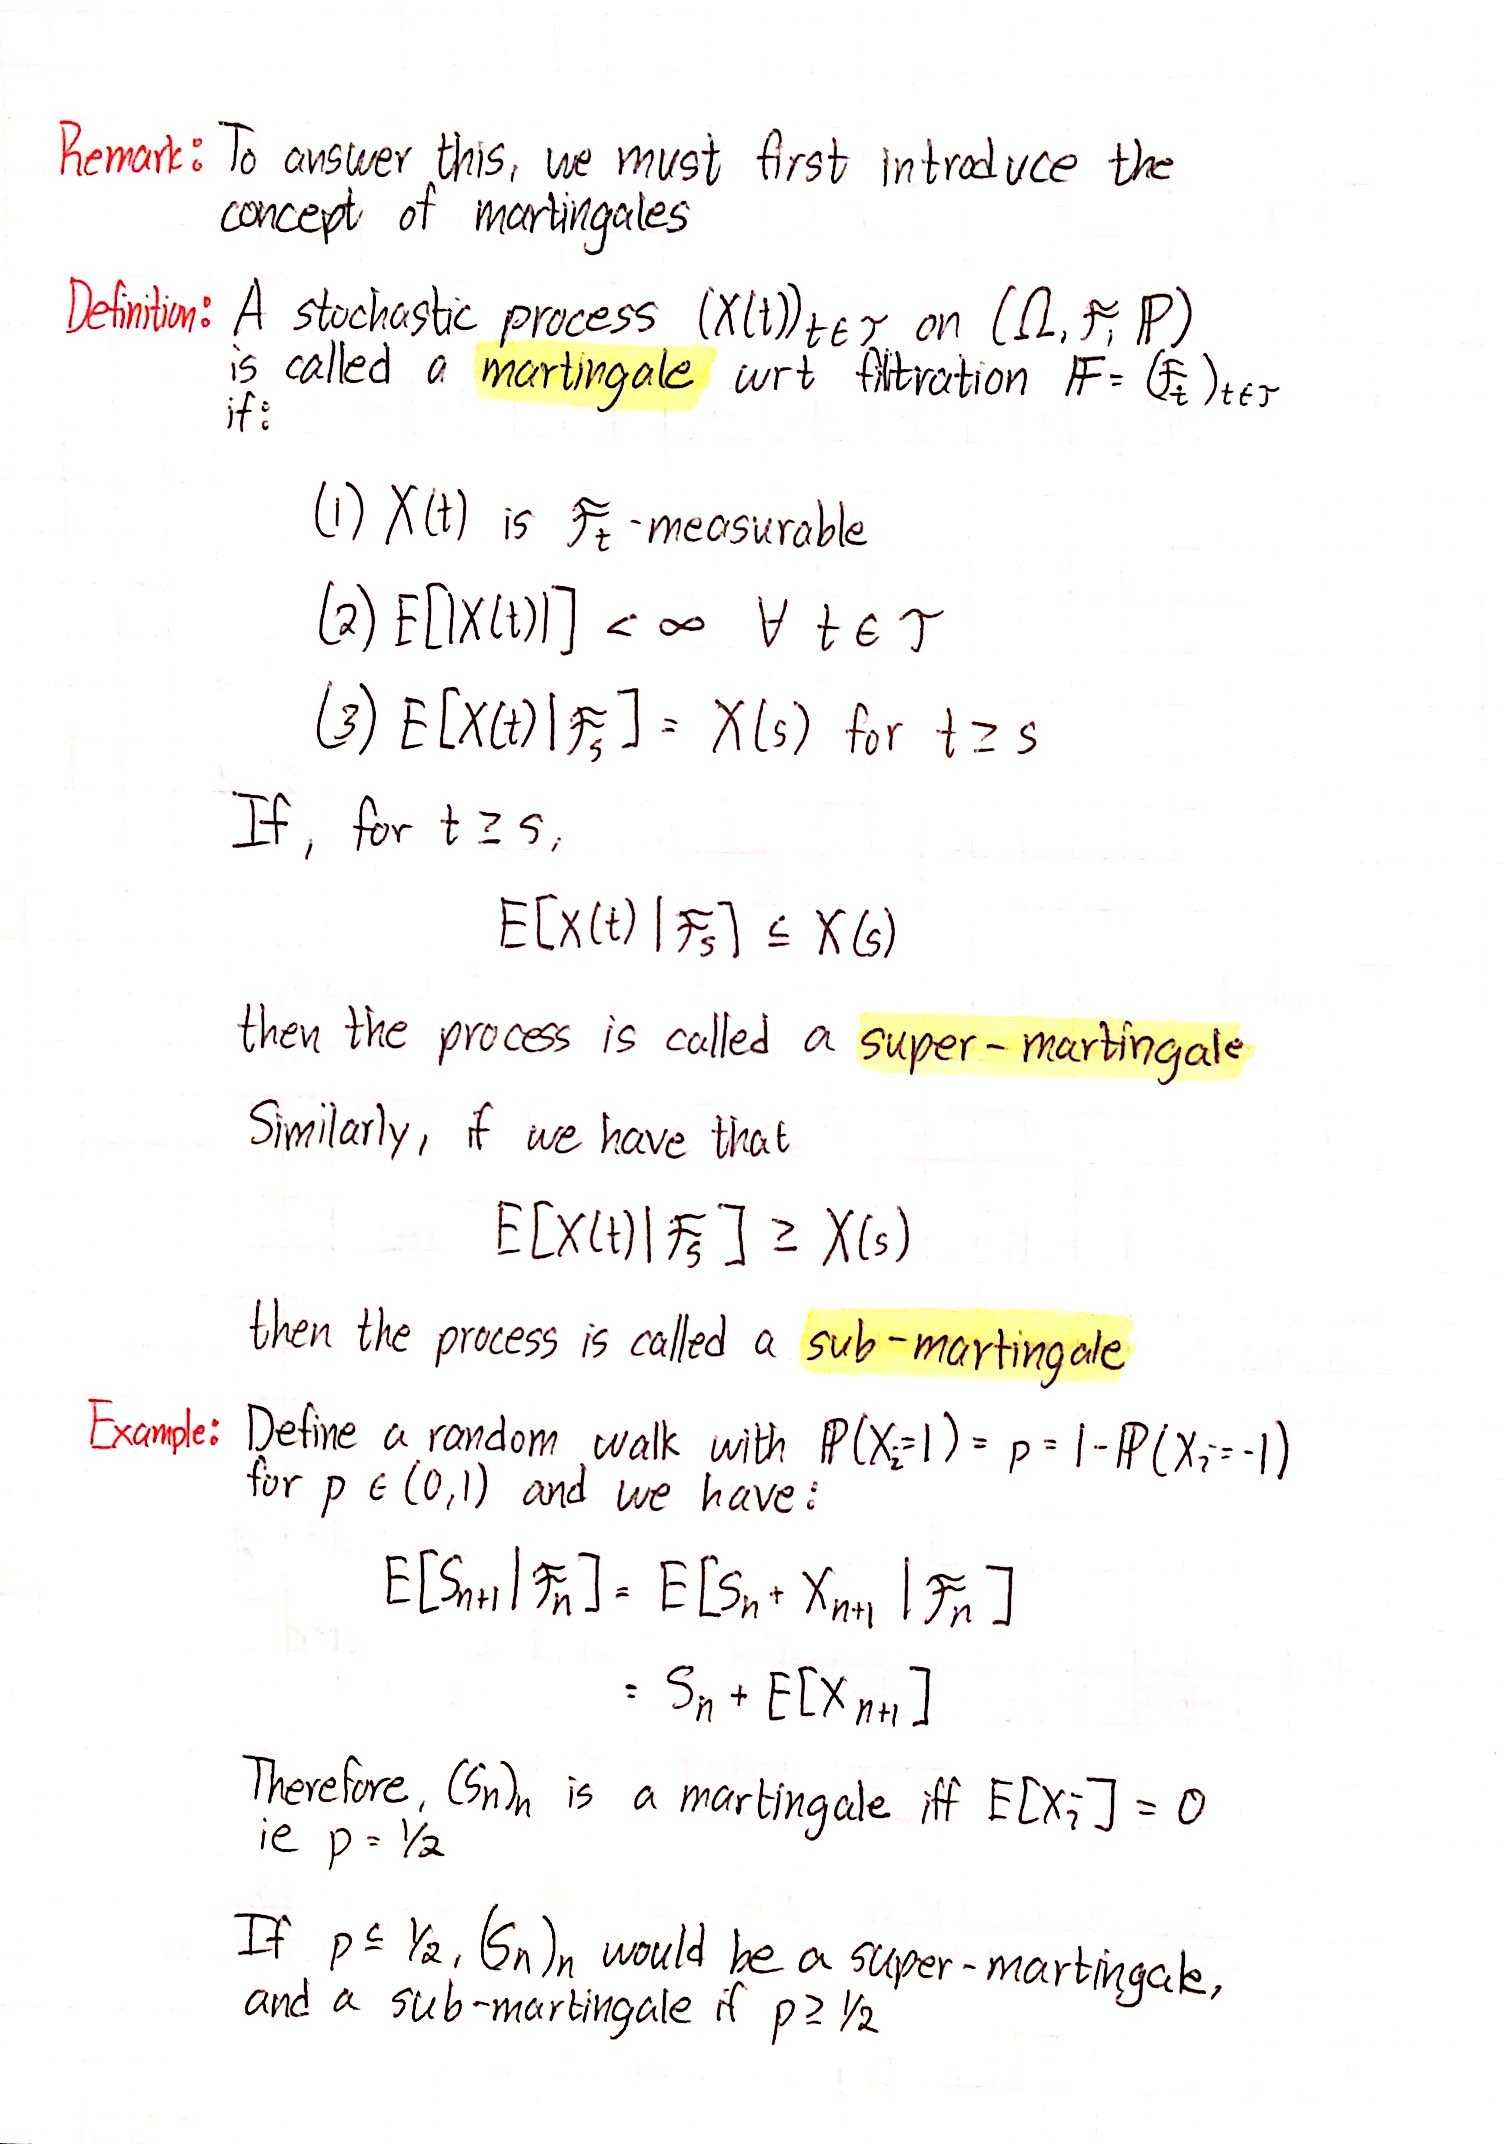 Remark: To answer this, we must first introduce the
concept of martingales
Definition: A stochastic process (X(t))_{t∈𝒯} on (Ω, ℱ, ℙ)
is called a martingale wrt filtration 𝔽 = (ℱ_t)_{t∈𝒯}
if:
(1) X(t) is ℱ_t-measurable
(2) E[|X(t)|] < ∞ ∀ t ∈ 𝒯
(3) E[X(t)|ℱ_s] = X(s) for t ≥ s
If, for t ≥ s,
E[X(t)|ℱ_s] ≤ X(s)
then the process is called a super-martingale
Similarly, if we have that
E[X(t)|ℱ_s] ≥ X(s)
then the process is called a sub-martingale
Example: Define a random walk with ℙ(X_i=1) = p = 1-ℙ(X_i=-1)
for p ∈ (0,1) and we have:
E[S_{n+1}|ℱ_n] = E[S_n + X_{n+1}|ℱ_n]
= S_n + E[X_{n+1}]
Therefore, (S_n)_n is a martingale iff E[X_i] = 0
ie p = 1/2
If p ≤ 1/2, (S_n)_n would be a super-martingale,
and a sub-martingale if p ≥ 1/2